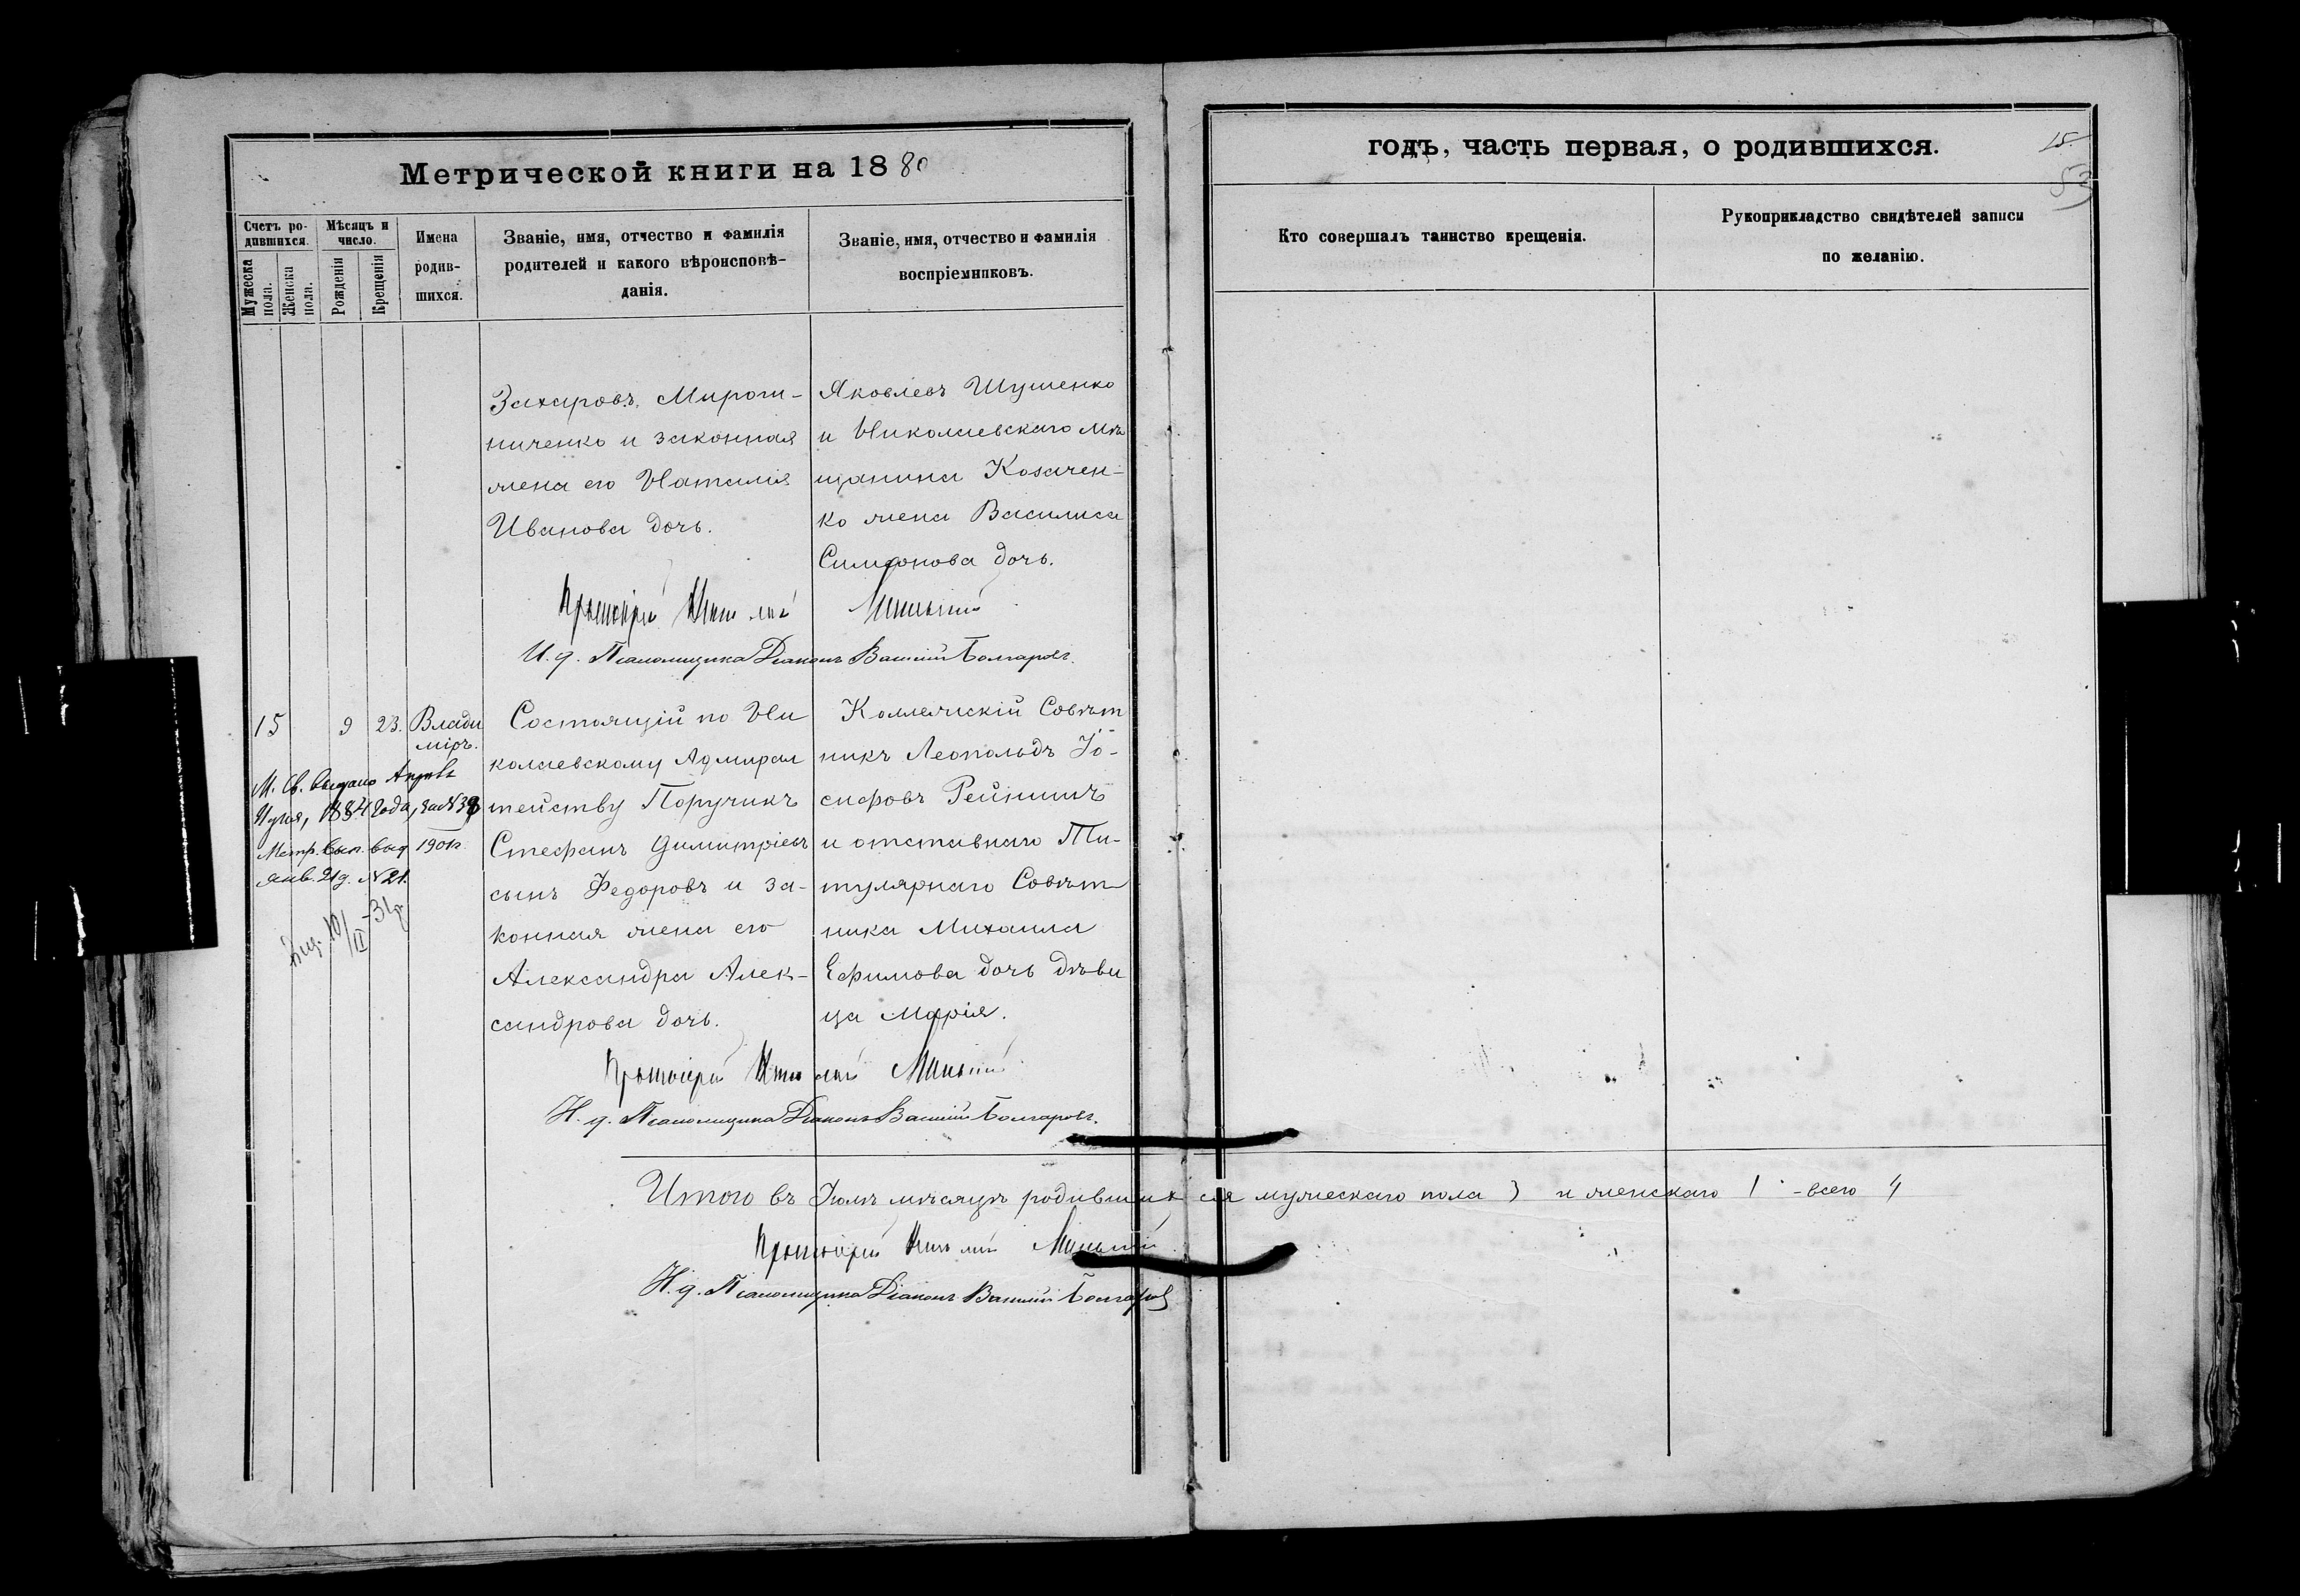 Метрической книги на 1880
годъ, часть первая, о родившихся.
15.
53
Счетъ ро-
дившихся.
Мужеска пола.
Женска пола.
Мѣсяцъ и
число.
Рожденія
Крещенія
Имена
родив-
шихся.
Званіе, имя, отчество и фамилія
родителей и какого вѣроисповѣ-
данія.
Званіе, имя, отчество и фамилія
воспріемниковъ.
Кто совершалъ таинство крещенія.
Рукоприкладство свидѣтелей записи
по желанію.
Захаровъ Мирош-
ниченко и законная
жена его Наталія
Иванова дочь.
Яковлевъ Шушенко
и Николаевскаго мѣ
щанина Козачен-
ко жена Василиса
Симеонова дочь.
Протоіерей
И. д. Псаломщика Діаконъ Василій Болгаровъ.
15
9
23.
Влади
міръ.
М. Св. выдано
1884 года, за №
Метр. вып. выд 1901г.
янв. 21д. №21.
Состоящій по Ни
колаевскому Адмирал
тейству Поручикъ
Стефанъ Димитріевъ
сынъ Федоровъ и за-
конная жена его
Александра Алек-
сандрова дочь.
Коллежскій Совѣт
никъ Леопольдъ Іо-
сифовъ
и отставнаго Ти-
тулярнаго Совѣт
ника Михаила
Ефимова дочь дѣви
ца Марія.
Протоіерей
И. д. Псаломщика Діаконъ Василій Болгаровъ.
Итого въ Іюлѣ мѣсяцѣ родившихся мужескаго пола 3 и женскаго 1 - всего 4
Протоіерей
И. д. Псаломщика Діаконъ Василій Болгаровъ